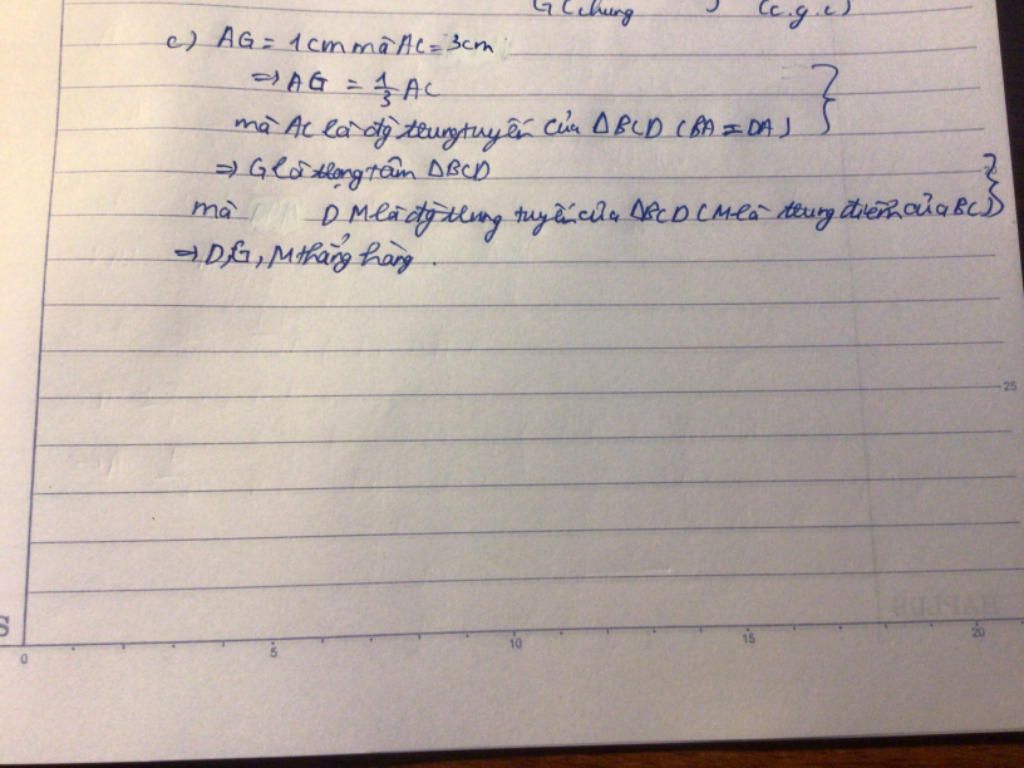 G Chung } (c.g.c)
c) AG = 1cm mà AC = 3cm
⇒ AG = 1/3 AC
mà AC là đg trung tuyến của ΔBCD (BA = DA) }
⇒ G là trọng tâm ΔBCD
mà DM là đg trung tuyến của ΔBCD (M là trung điểm của BC) }
⇒ D, G, M thẳng hàng.
25
HAPLUS
S
0 5 10 15 20